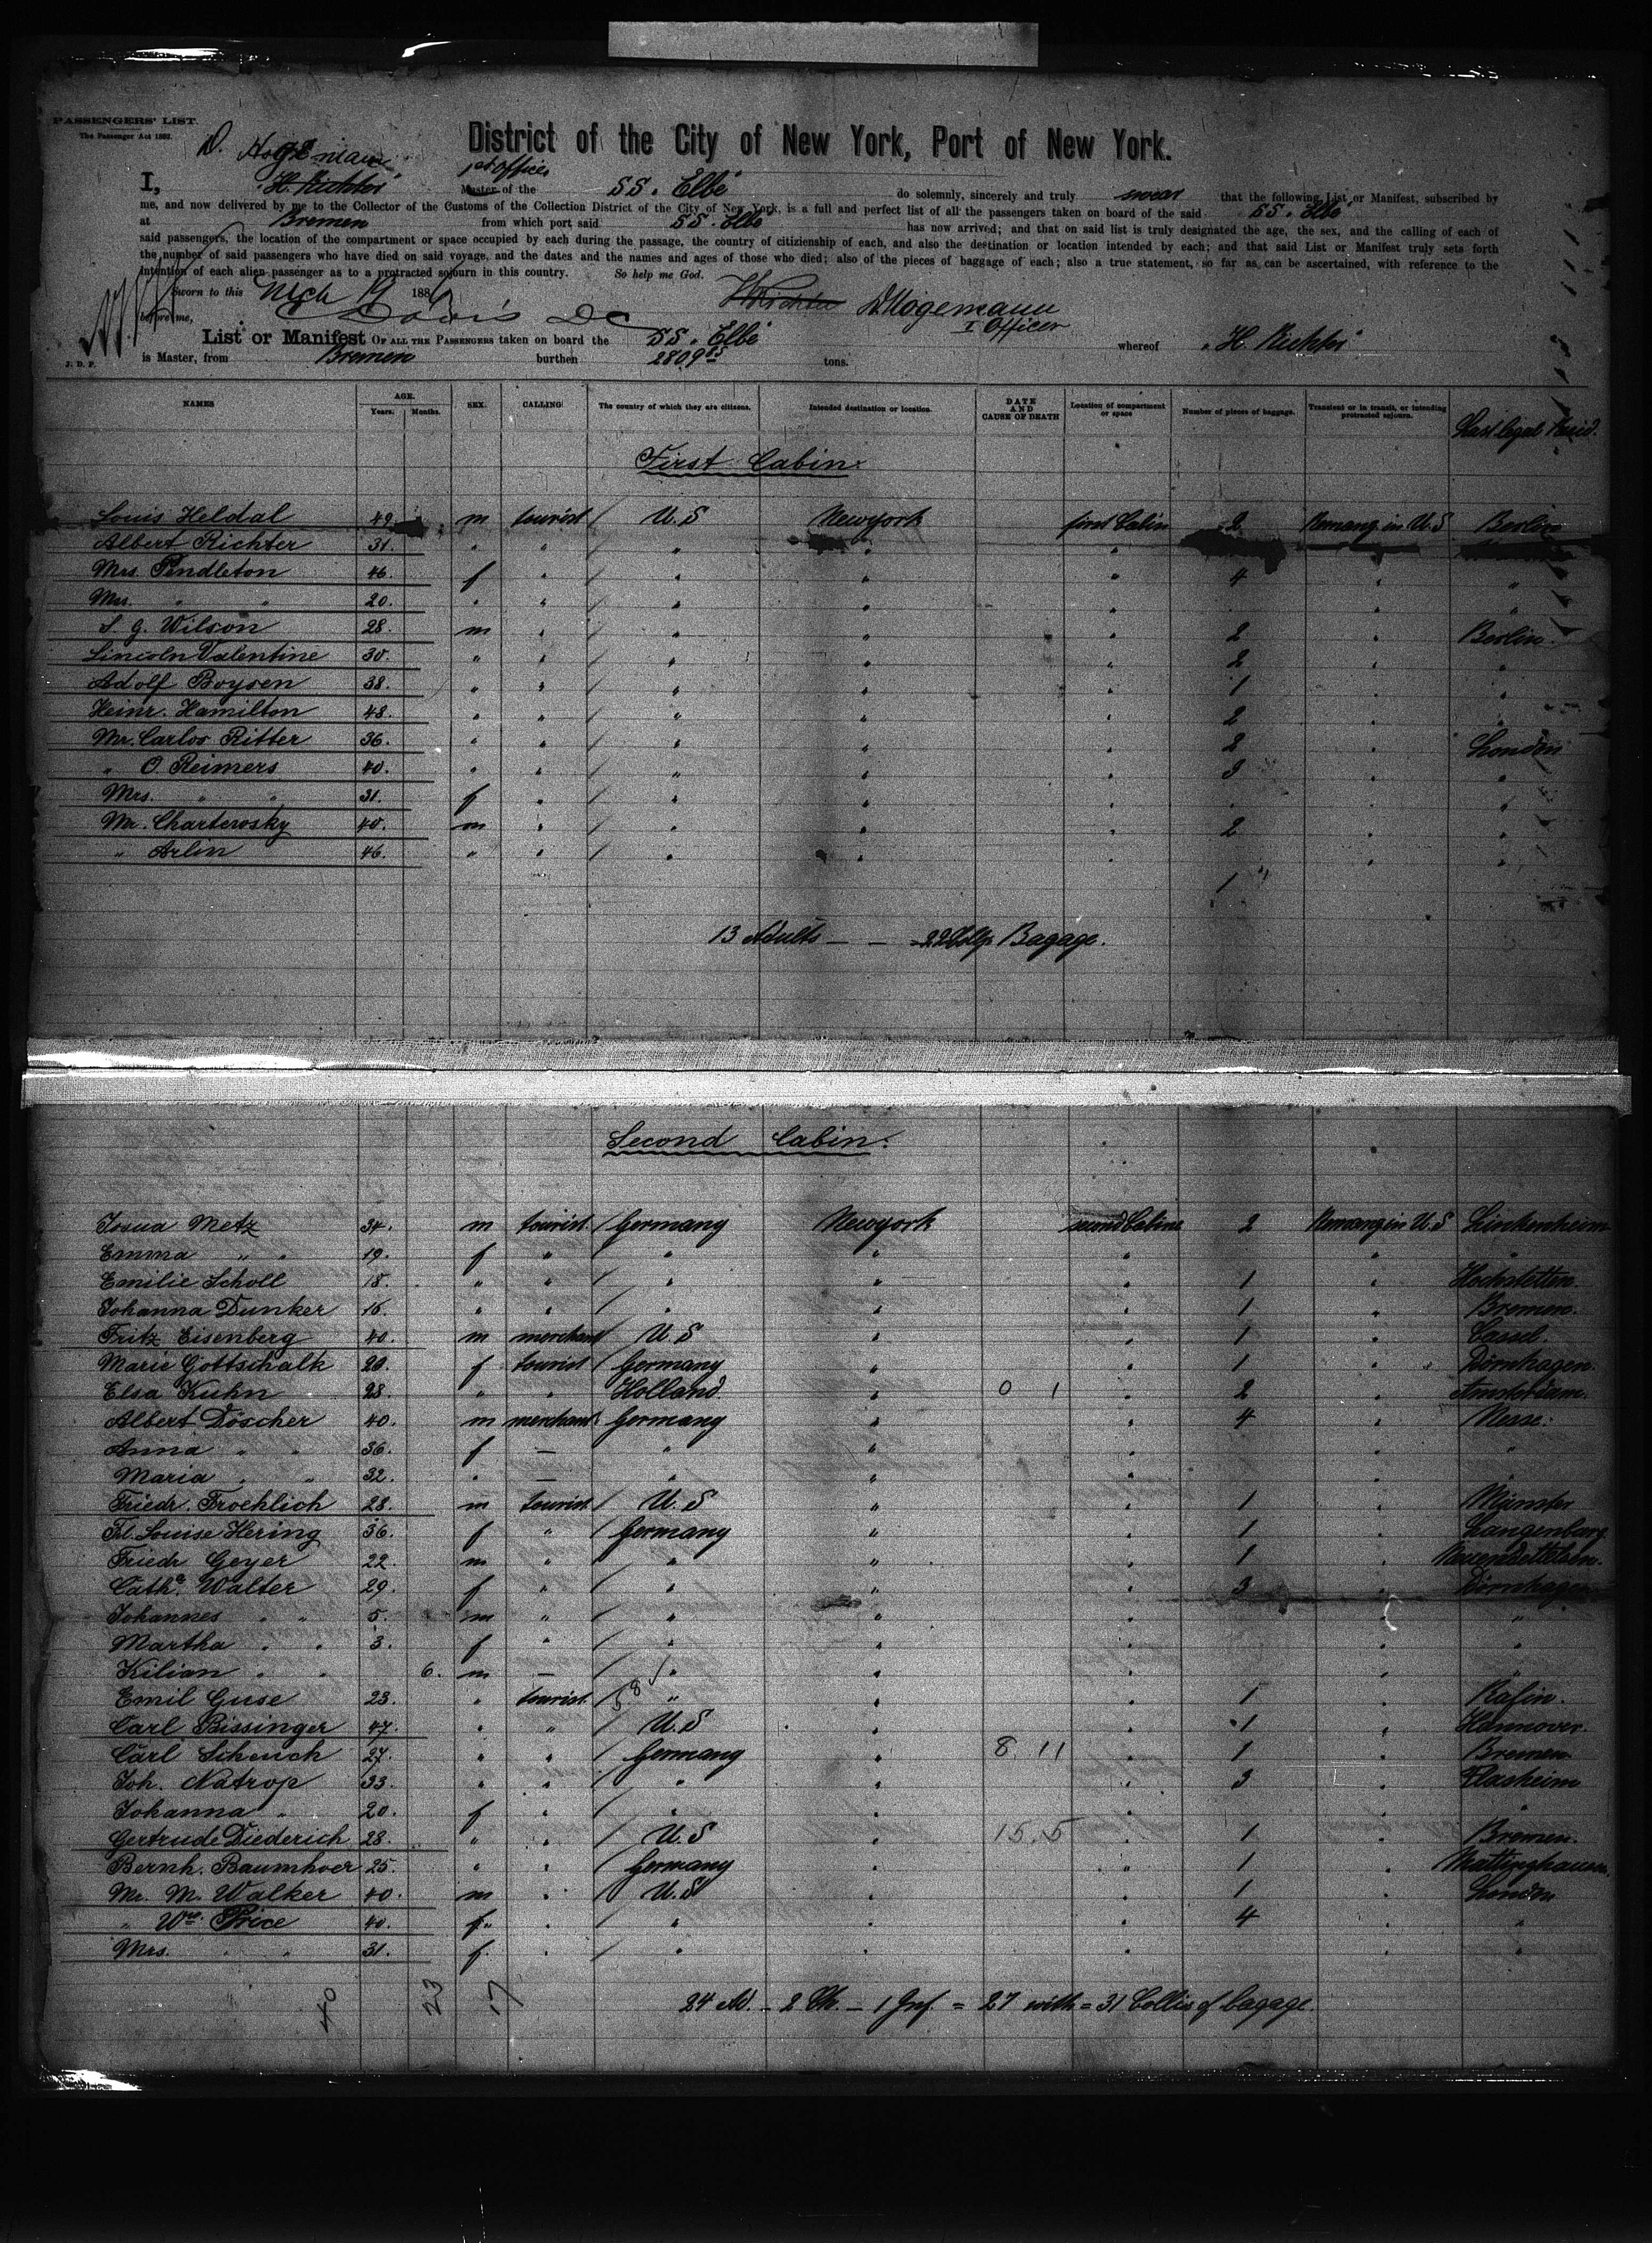 PASSENGERS' LIST.
The Passenger Act 1882.
District of the City of New York, Port of New York.
D. Hogemann
1st Officer
I, H. Richter Master of the SS. Elbe do solemnly, sincerely and truly swear that the following List or Manifest, subscribed by
me, and now delivered by me to the Collector of the Customs of the Collection District of the City of New York, is a full and perfect list of all the passengers taken on board of the said SS. Elbe
at Bremen from which port said SS. Elbe has now arrived; and that on said list is truly designated the age, the sex, and the calling of each of
said passengers, the location of the compartment or space occupied by each during the passage, the country of citizienship of each, and also the destination or location intended by each; and that said List or Manifest truly sets forth
the number of said passengers who have died on said voyage, and the dates and the names and ages of those who died; also of the pieces of baggage of each; also a true statement, so far as can be ascertained, with reference to the
intention of each alien passenger as to a protracted sojourn in this country. So help me God.
Sworn to this Mch 19 188 H Richter D Hogemann
before me, Davis DC I Officer
List or Manifest OF ALL THE PASSENGERS taken on board the SS. Elbe whereof H. Richter
J. D. P. is Master, from Bremen burthen 2809 85 tons.
NAMES AGE. Years. Months. SEX. CALLING The country of which they are citizens. Intended destination or location. DATE AND CAUSE OF DEATH Location of compartment or space Number of pieces of baggage. Transient or in transit, or intending protracted sojourn. Last legal Resid.
First Cabin.
Louis Heldal 49 m tourist / U.S Newyork first Cabin 2 Remang in U.S Berlin
Albert Richter 31. " " / " " "
Mrs. Pendleton 46. f " / " " " 4 " "
Mrs. " " 20. " " / " " " " "
S. G. Wilson 28. m " / " " " 2 " Berlin
Lincoln Valentine 30. " " / " " " 2 " "
Adolf Boysen 38. " " / " " " 1 " "
Heinr. Hamilton 48. " " / " " " 2 " "
Mr. Carlos Ritter 36. " " / " " " 2 " London
" O. Reimers 40. " " / " " " 3 " "
Mrs. " " 31. f " / " " " " "
Mr. Charterosky 40. m " / " " " 2 " "
" Arlin 46. " " / " " " " "
1
13 Adults — — 22 Bagage.
Second Cabin.
Josua Metz 34. m tourist / Germany Newyork second Cabine 2 Remang in U.S Linkenheim
Emma " " 19. f " / " " " " "
Emilie Scholl 18. " " / " " " 1 " Hochstetten
Johanna Dunker 16. " " / " " " 1 " Bremen.
Fritz Eisenberg 40. m merchant / U.S " " 1 " Cassel.
Marie Gottschalk 20. f tourist / Germany " " 1 " Dörnhagen.
Elsa Kuhn 28. " " / Holland " 0 1 " 2 " Amsterdam.
Albert Döscher 40. m merchant / Germany " " 4 " Nesse.
Anna " " 36. f — " " " " "
Maria " " 32. " — " " " " "
Friedr. Froehlich 28. m tourist / U.S " " 1 " Münster
Frl. Louise Hering 36. f " / Germany " " 1 " Langenburg
Friedr Geyer 22. m " / " " " 1 " Neuendettelsau.
Cathe. Walter 29. f " / " " " 3 " Dörnhagen
Johannes " " 5. m " / " " " " "
Martha " " 3. f " / " " " " "
Kilian " " 6. m — / " " " " "
Emil Guse 23. " tourist / 58 " " " 1 " Rasin.
Carl Bissinger 47. " " / U.S " " 1 " Hannover.
Carl Schenck 27. " " / Germany " 8. 11 " 1 " Bremen
Joh. Natrop 33. " " / " " " 3 " Flasheim
Johanna " 20. f " / " " " " "
Gertrude Diederich 28. " " / U.S " 15. 5 " 1 " Bremen.
Bernh. Baumhoer 25. " " / Germany " " 1 " Mattinghausen.
Mr. M. Walker 40. m " / U.S " " 1 " London
" Wm. Price 40. f " / " " " 4 "
Mrs. " " 31. f " / " " " "
40 23 17
24 Ad. — 2 Ch. — 1 Inf. = 27 with = 31 Collis of bagage.